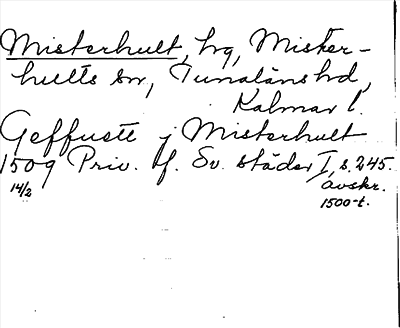 Misterhult, hg, Mister-
hults sn, Tunaläns hd,
Kalmar l.
Geffuett j Misterhult
1509 Priv. f. Sv. städer I, s. 245.
14/2 avskr.
1500-t.